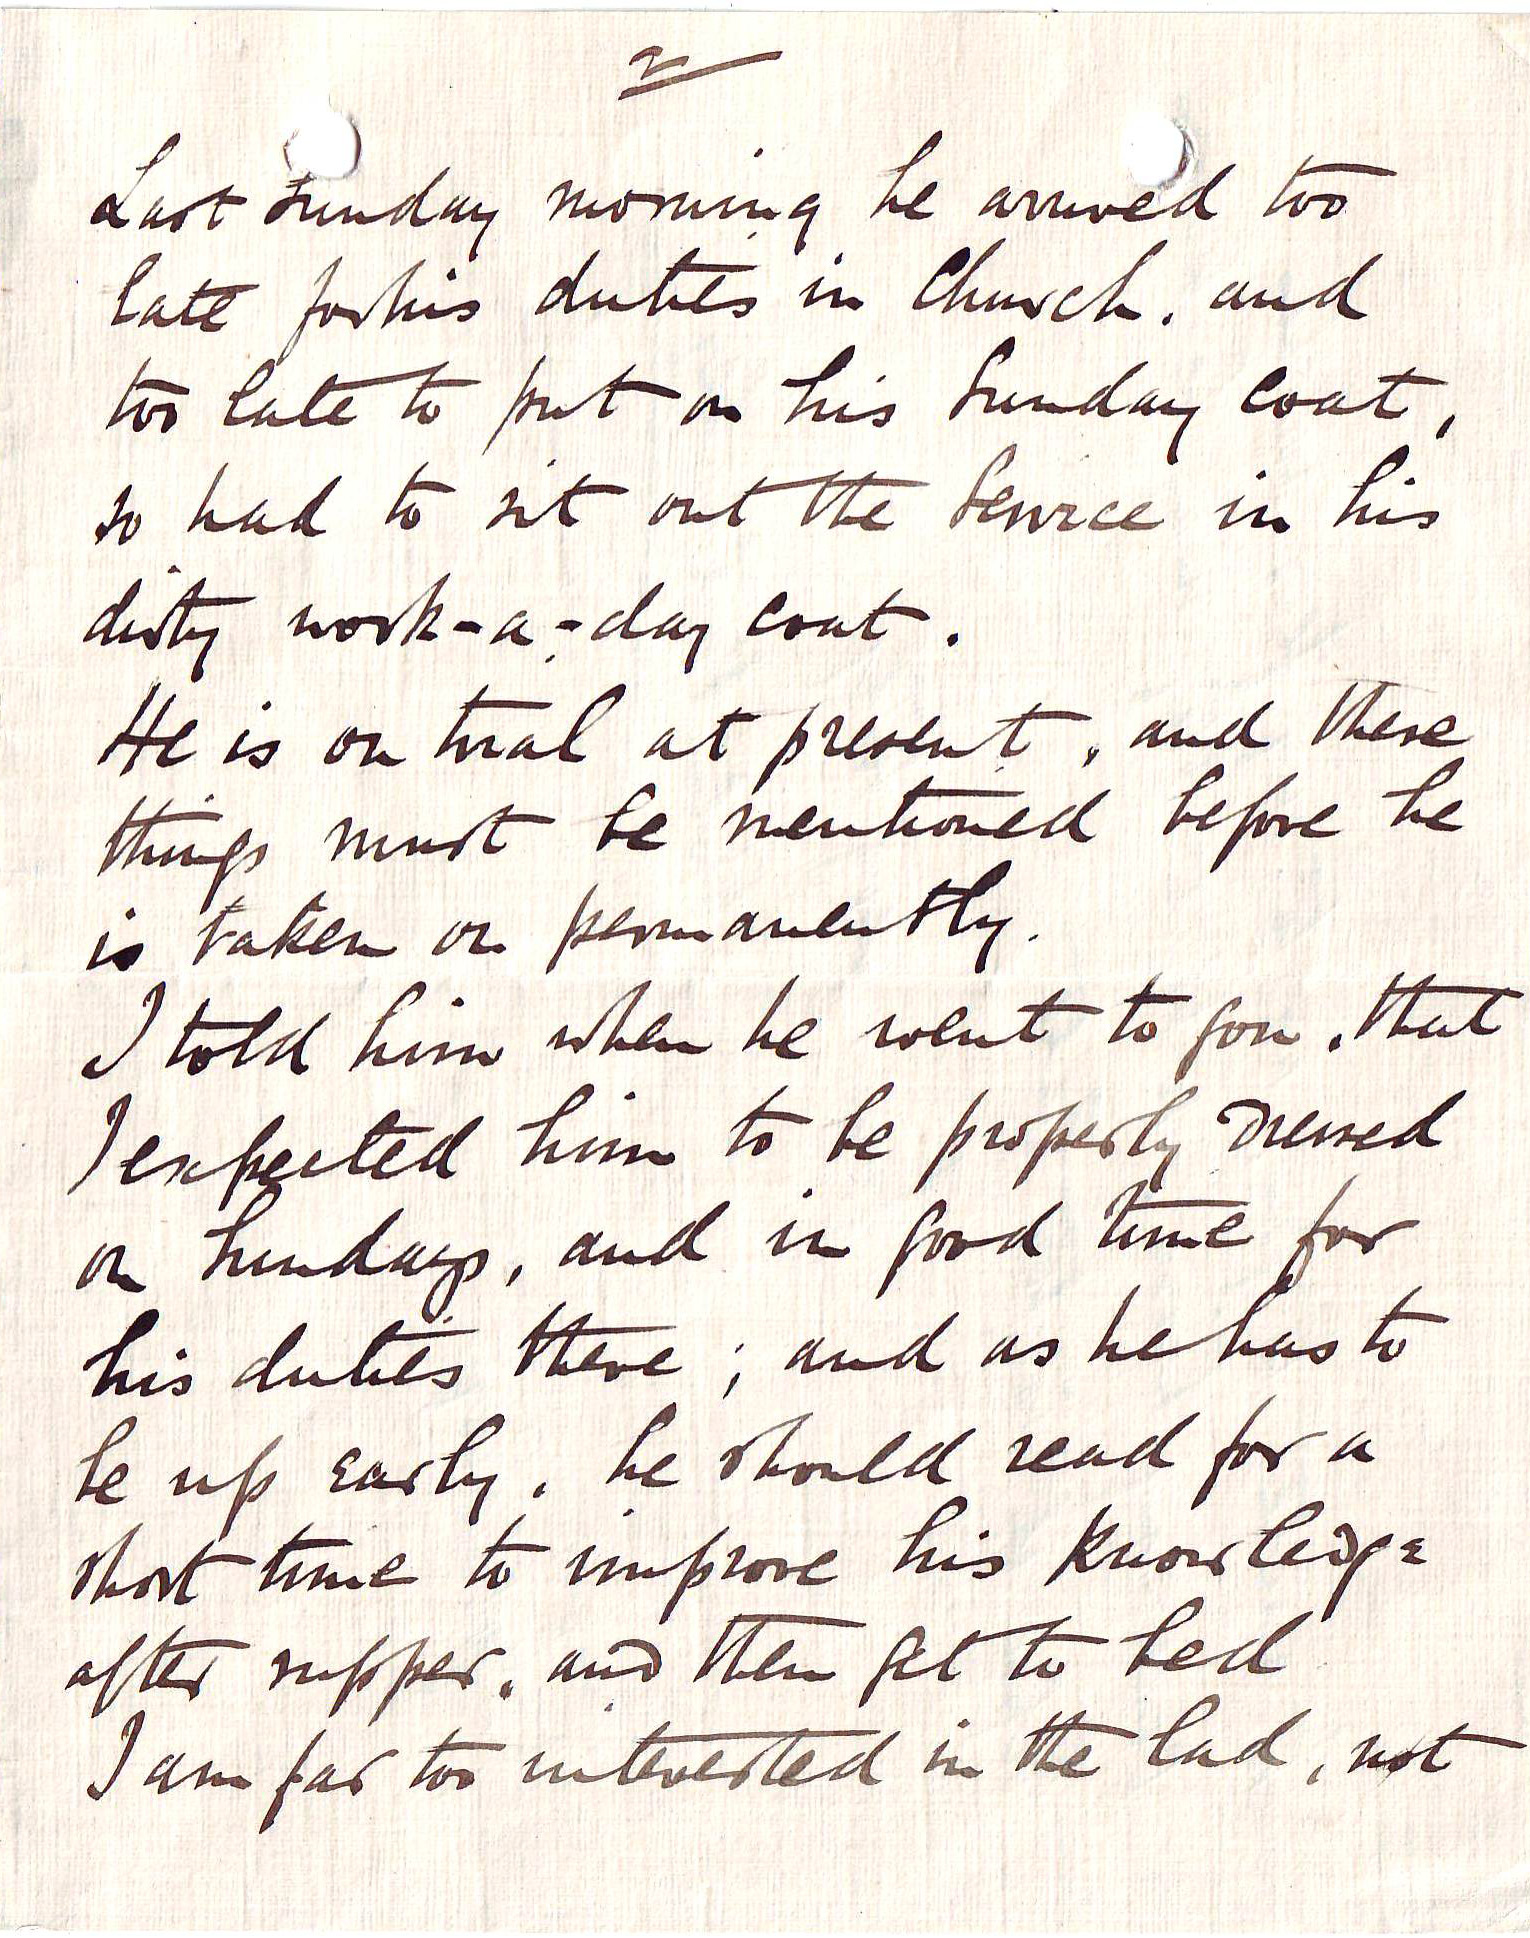 2
Last Sunday morning he arrived too
late for his duties in Church, and
too late to put on his Sunday coat,
so had to sit out the Service in his
dirty work-a-day coat.
He is on trial at present, and these
things must be mentioned before he
is taken on permanently.
I told him when he went to you, that
I expected him to be properly dressed
on Sundays, and in good time for
his duties there; and as he has to
be up early, he should read for a
short time to improve his knowledge
after supper, and then get to bed
I am far too interested in the lad, not